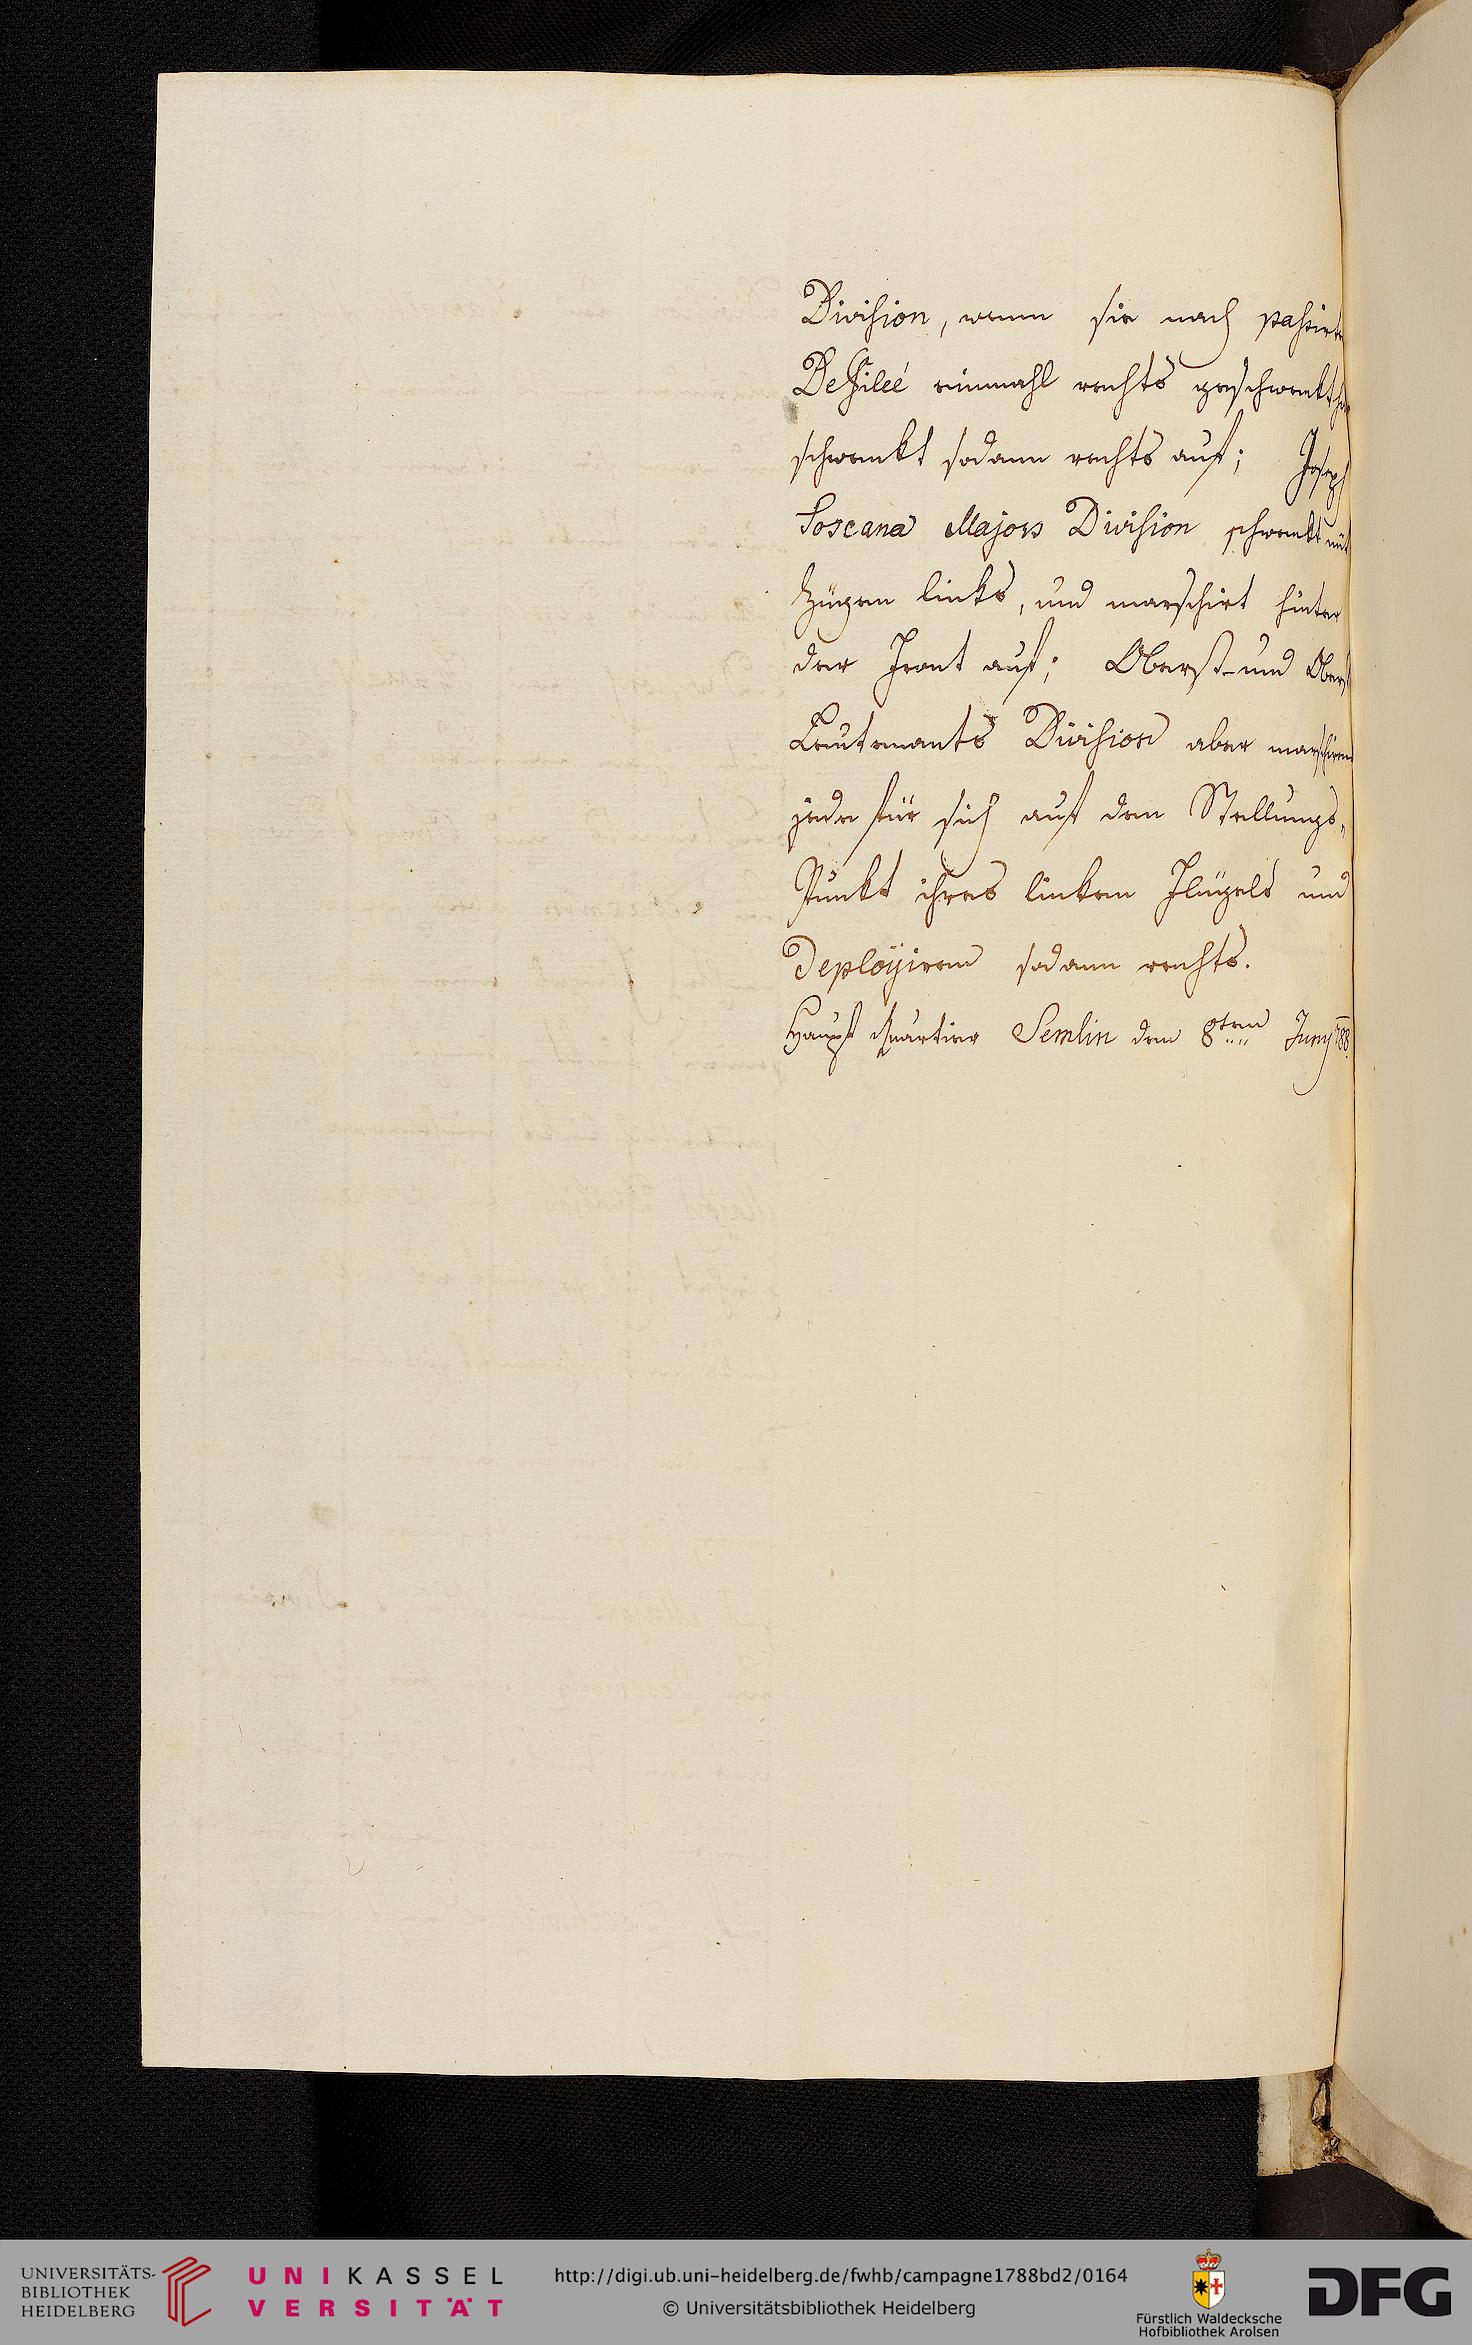 Division, wenn sie nach passirte
Defileé einmahl rechts geschwenkt hat
schwenkt sodann rechts auf; Joseph
Toscana Majors Division schwenkt mit
Zügen links, und marschirt hinter
der Front auf; Oberst- und Oberst
Leutenants Division aber marschiren
jede für sich auf den Stellungs„
Punkt ihres linken Flügels und
Deployiren sodann rechts.
Haupt Quartier Semlin den 8ten Juny 788.
UNIVERSITÄTS-
BIBLIOTHEK
HEIDELBERG
UNIKASSEL
VERSITÄT
http://digi.ub.uni-heidelberg.de/fwhb/campagne1788bd2/0164
© Universitätsbibliothek Heidelberg
Fürstlich Waldecksche
Hofbibliothek Arolsen
DFG